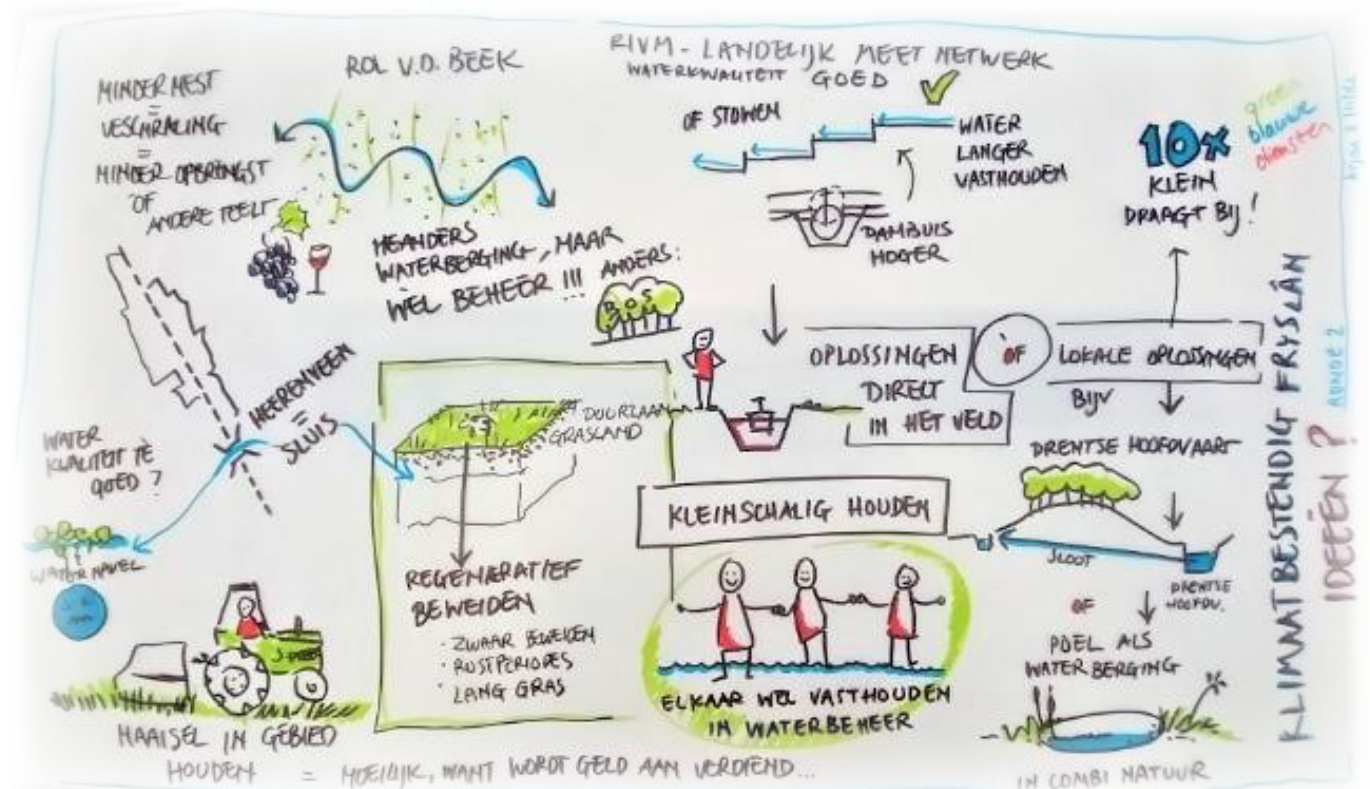 MINDER MEST
=
VESCHRALING
=
MINDER OPBRENGST
OF
ANDERE TEELT
ROL V.D. BEEK
MEANDERS
WATERBERGING, MAAR
WEL BEHEER !!!
ANDERS:
BOS
RIVM - LANDELIJK MEET NETWERK
WATERKWALITEIT GOED
OF STUWEN
WATER
LANGER
VASTHOUDEN
DAMBUIS
HOGER
10x
KLEIN
DRAAGT BIJ!
groen
blauwe
diensten
Arjan & Hilda
HEERENVEEN
=
SLUIS
WATER
KWALITEIT TÈ
GOED?
WATERNAVEL
DUURZAAM
GRASLAND
REGENERATIEF
BEWEIDEN
· ZWAAR BEWEIDEN
· RUSTPERIODES
· LANG GRAS
OPLOSSINGEN
DIRECT
IN HET VELD
OF
LOKALE OPLOSSINGEN
BIJV
DRENTSE HOOFDVAART
SLOOT
DRENTSE
HOOFDV.
OF
POEL ALS
WATERBERGING
IN COMBI NATUUR
KLEINSCHALIG HOUDEN
ELKAAR WEL VASTHOUDEN
IN WATERBEHEER
MAAISEL IN GEBIED
HOUDEN = MOEILIJK, WANT WORDT GELD AAN VERDIEND...
KLIMAATBESTENDIG FRYSLÂN
IDEEËN?
RONDE 2